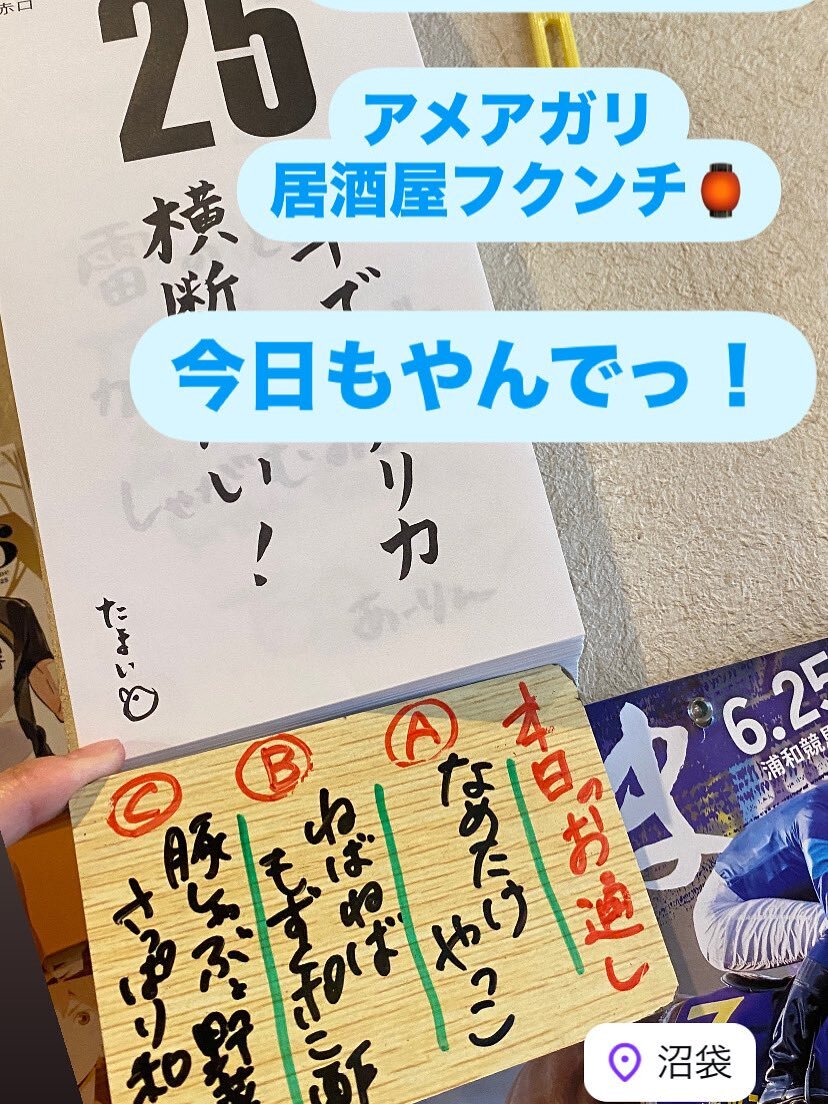 赤口
25
アメアガリ
居酒屋フクンチ🏮
今日もやんでっ！
で
リカ
横断
い！
たまい
本日のお通し
Ⓐ
なめたけ やっこ
Ⓑ
ねばねば
もずく
酢
Ⓒ
豚しゃぶと野菜
さっぱり和
6.25
浦和競馬
沼袋